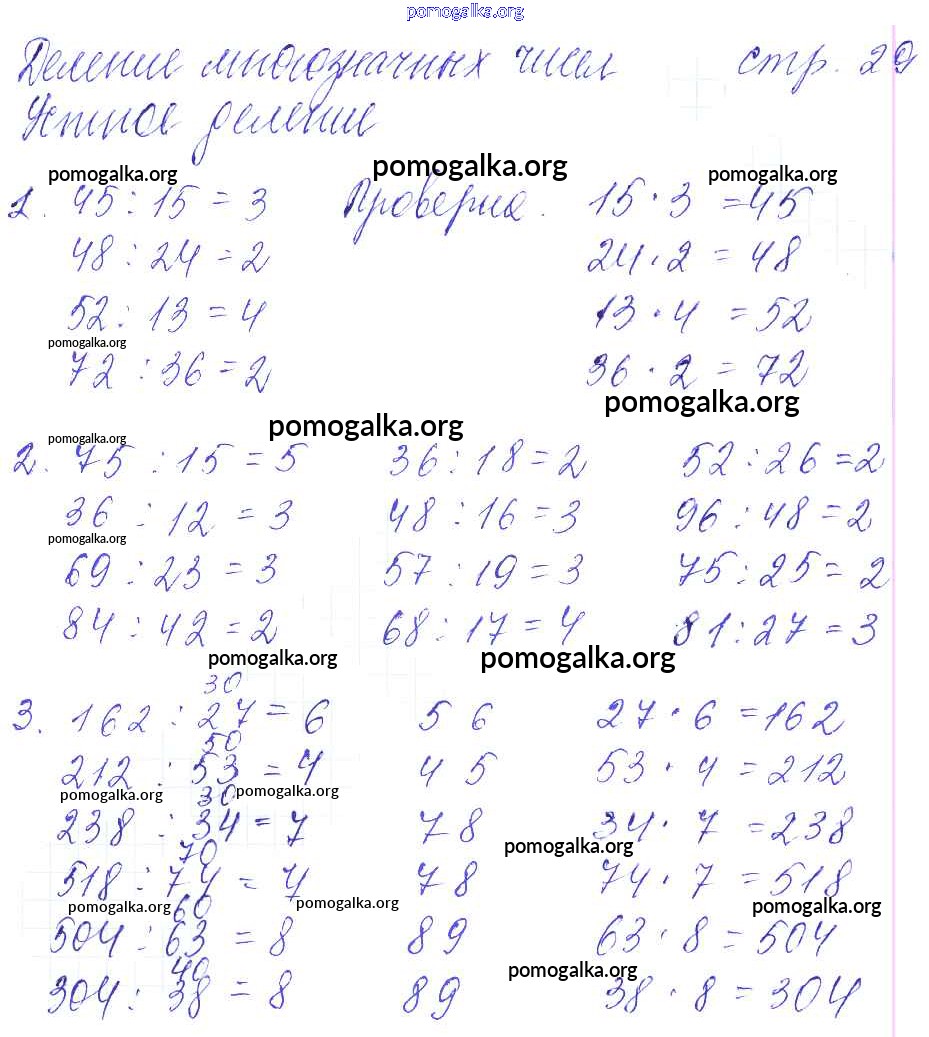 pomogalka.org
Деление многозначных чисел стр. 29
Устное деление
pomogalka.org pomogalka.org pomogalka.org
1. 45 : 15 = 3 Проверка. 15 · 3 = 45
48 : 24 = 2 24 · 2 = 48
52 : 13 = 4 13 · 4 = 52
pomogalka.org
72 : 36 = 2 36 · 2 = 72
pomogalka.org
pomogalka.org
pomogalka.org
2. 75 : 15 = 5 36 : 18 = 2 52 : 26 = 2
36 : 12 = 3 48 : 16 = 3 96 : 48 = 2
pomogalka.org
69 : 23 = 3 57 : 19 = 3 75 : 25 = 2
84 : 42 = 2 68 : 17 = 4 81 : 27 = 3
pomogalka.org pomogalka.org
30
3. 162 : 27 = 6 5 6 27 · 6 = 162
50
212 : 53 = 4 4 5 53 · 4 = 212
pomogalka.org 30 pomogalka.org
238 : 34 = 7 7 8 34 · 7 = 238
pomogalka.org
70
518 : 74 = 4 7 8 74 · 7 = 518
pomogalka.org 60 pomogalka.org pomogalka.org
504 : 63 = 8 8 9 63 · 8 = 504
40 pomogalka.org
304 : 38 = 8 8 9 38 · 8 = 304